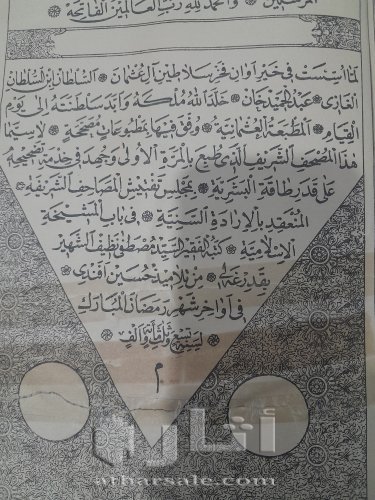 المرسلين ۞ والحمد لله رب العالمين الفاتحة ۞
لما اسست في خير اوان فخر سلاطين آل عثمان ۞ السلطان ابن السلطان
الغازي ۞ عبد الحميد خان ۞ خلد الله ملكه وابد سلطنته الى يوم
القيام ۞ المطبعة العثمانية ۞ ووفق فيها بمطبوعات مصححة ۞ لا سيما
هذا المصحف الشريف الذي طبع بالمرة الاولى وجهد في خدمة تصحيحه
على قدر طاقة البشرية ۞ بمجلس تفتيش المصاحف الشريفة ۞
المنعقد بالارادة السنية ۞ في باب المشيخة
الاسلامية ۞ كتبه الفقير السيد مصطفى نظيف الشهير
بقدرغه لي ۞ من تلاميذ حسين افندي ۞
في اواخر شهر رمضان المبارك
لسنة تسع وثلثمائة والف ۞
م
أثار
atharsale.com